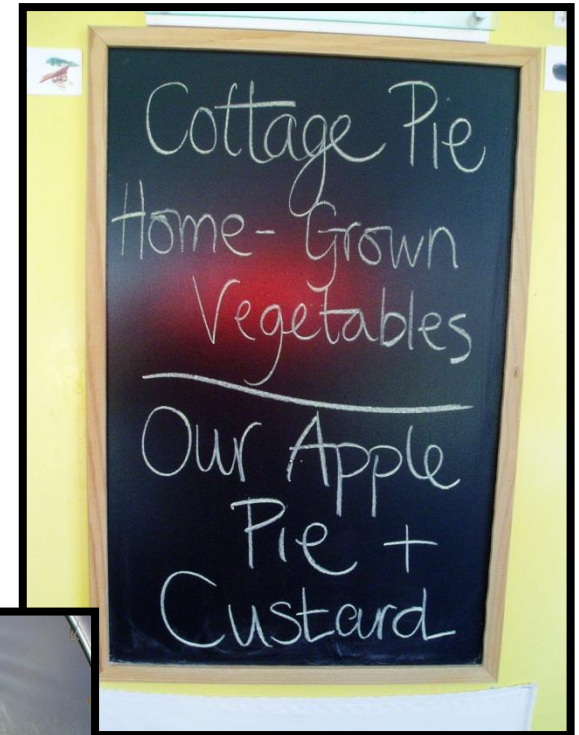 Cottage Pie
Home-Grown
Vegetables
Our Apple
Pie +
Custard